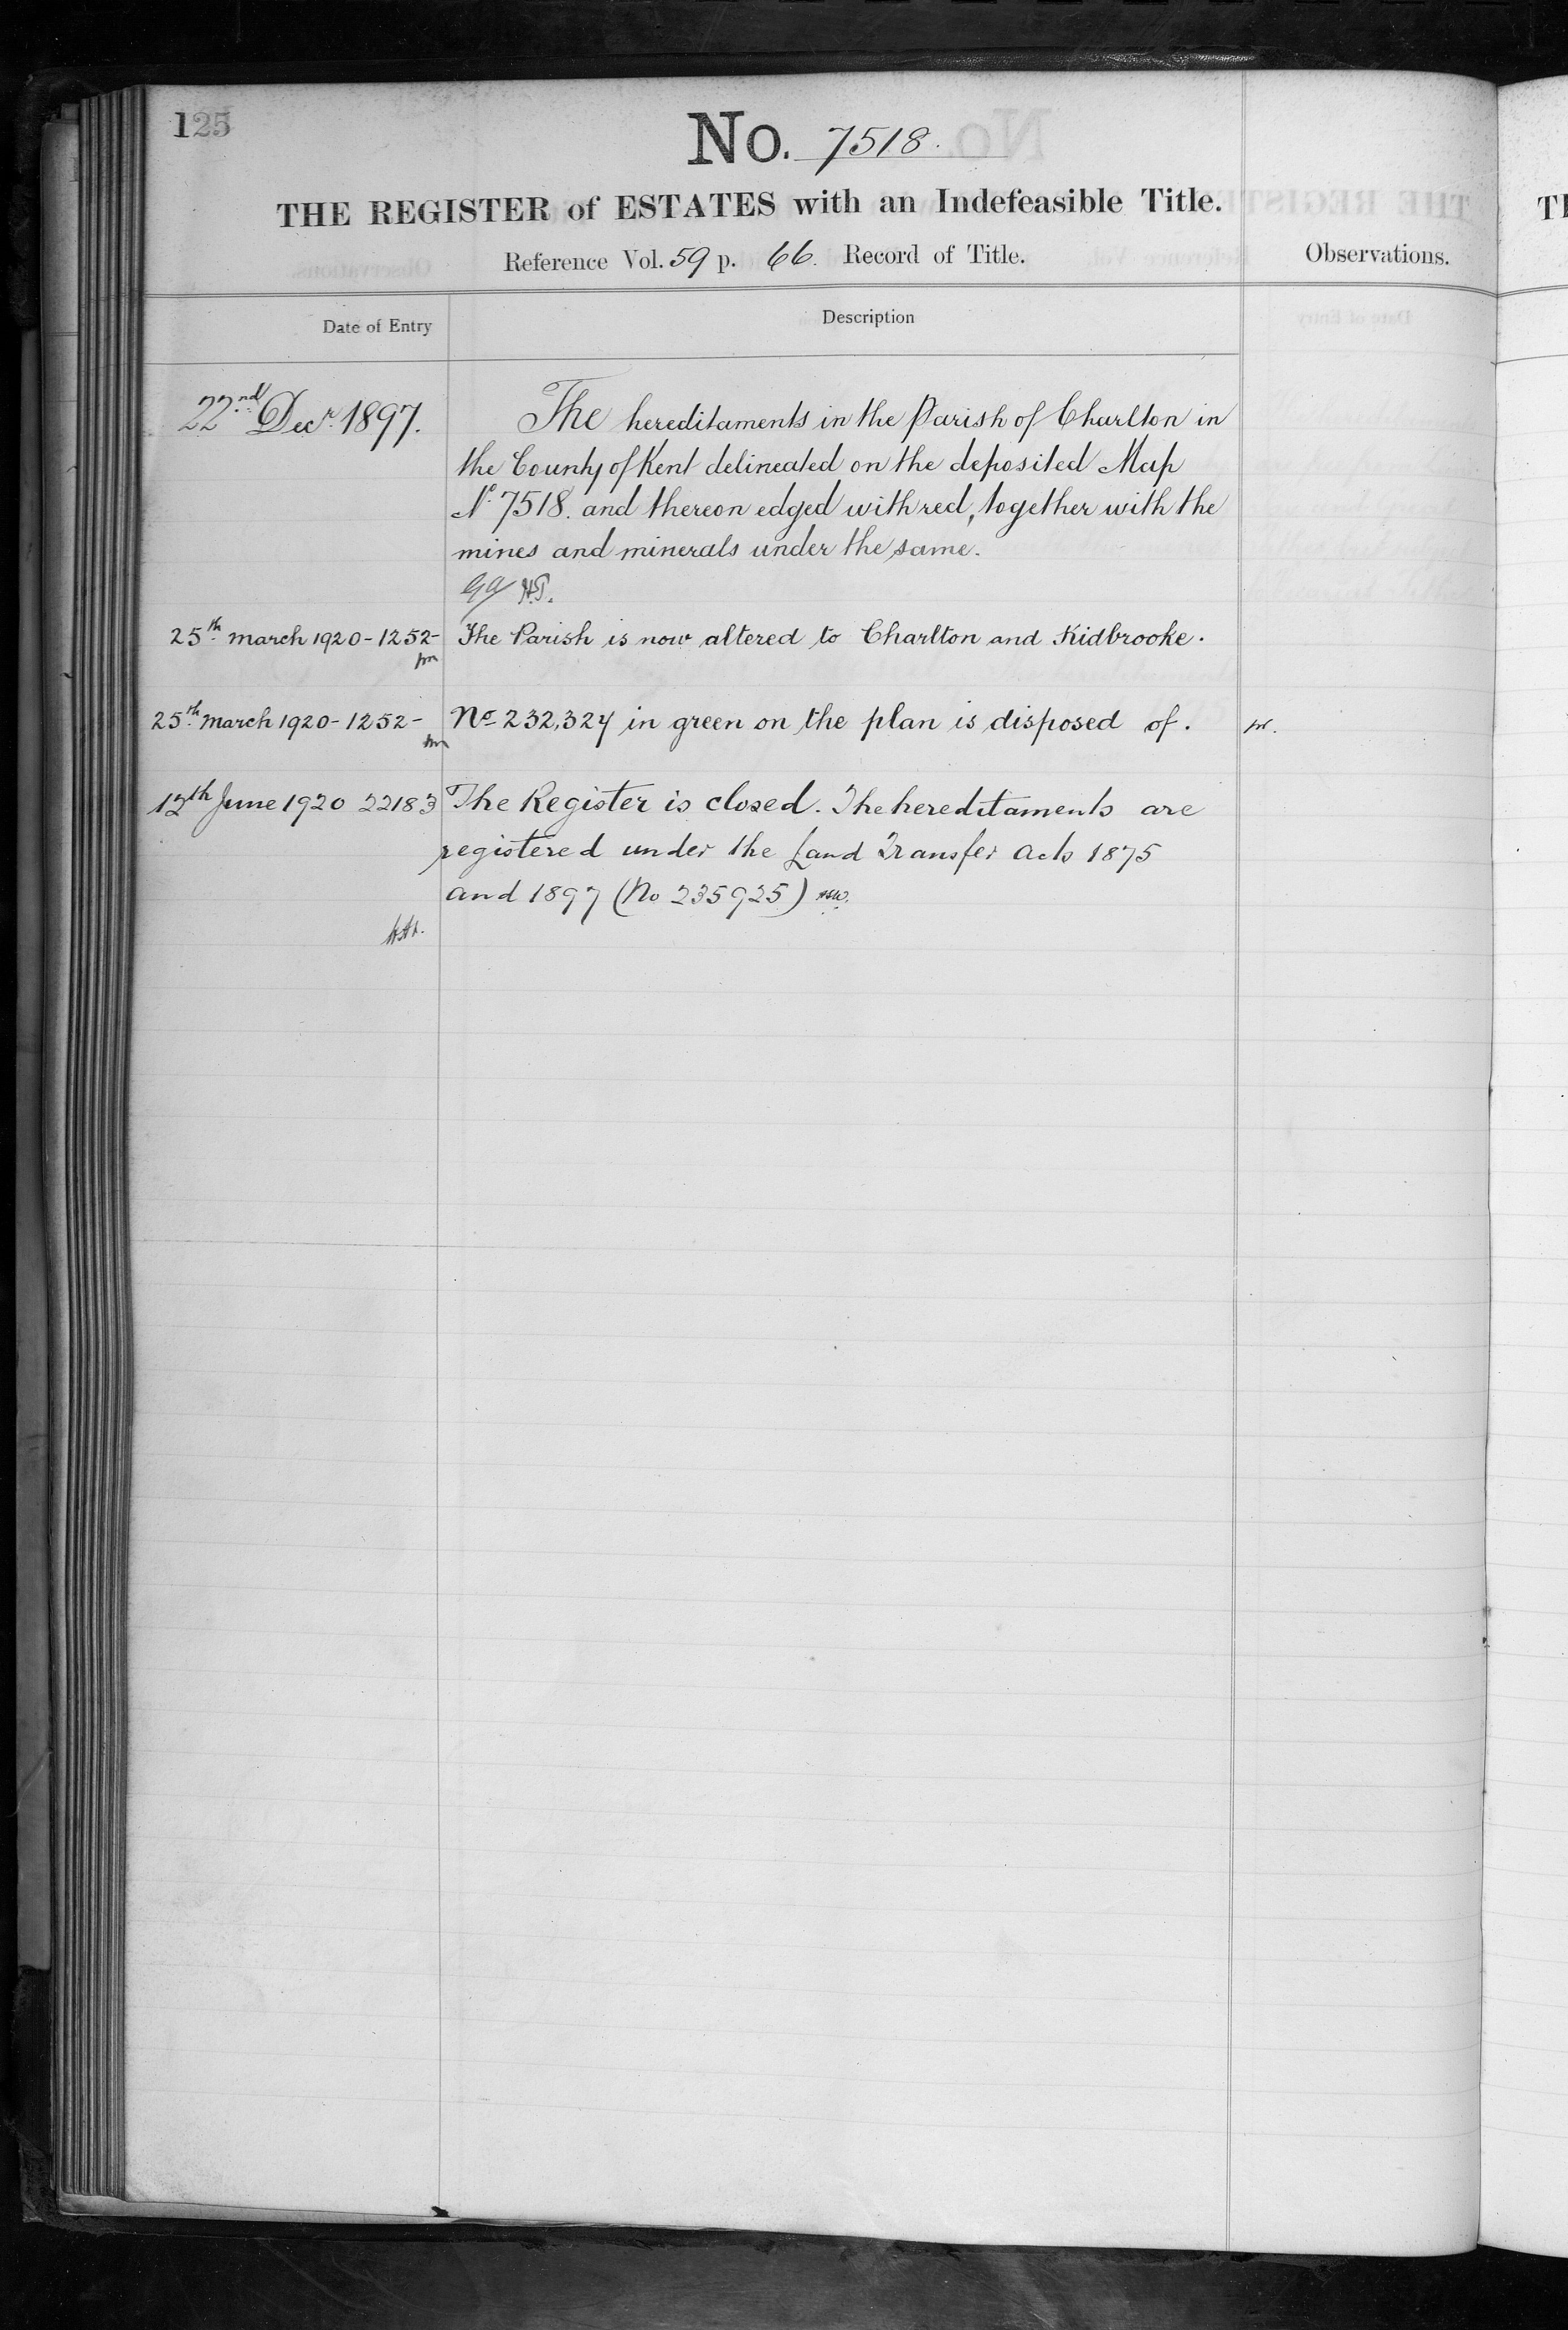 125
No. 7518.
THE REGISTER of ESTATES with an Indefeasible Title.
Reference Vol. 59 p. 66. Record of Title.
Observations.
Date of Entry
Description
22nd Decr. 1897.
The hereditaments in the Parish of Charlton in
the County of Kent delineated on the deposited Map
No. 7518. and thereon edged with red, together with the
mines and minerals under the same.
25th March 1920 - 1252 -
The Parish is now altered to Charlton and Kidbrooke.
25th March 1920 - 1252 -
No 232,324 in green on the plan is disposed of.
12th June 1920 22183
The Register is closed. The hereditaments are
registered under the Land Transfer Acts 1875
and 1897 (No 235925)